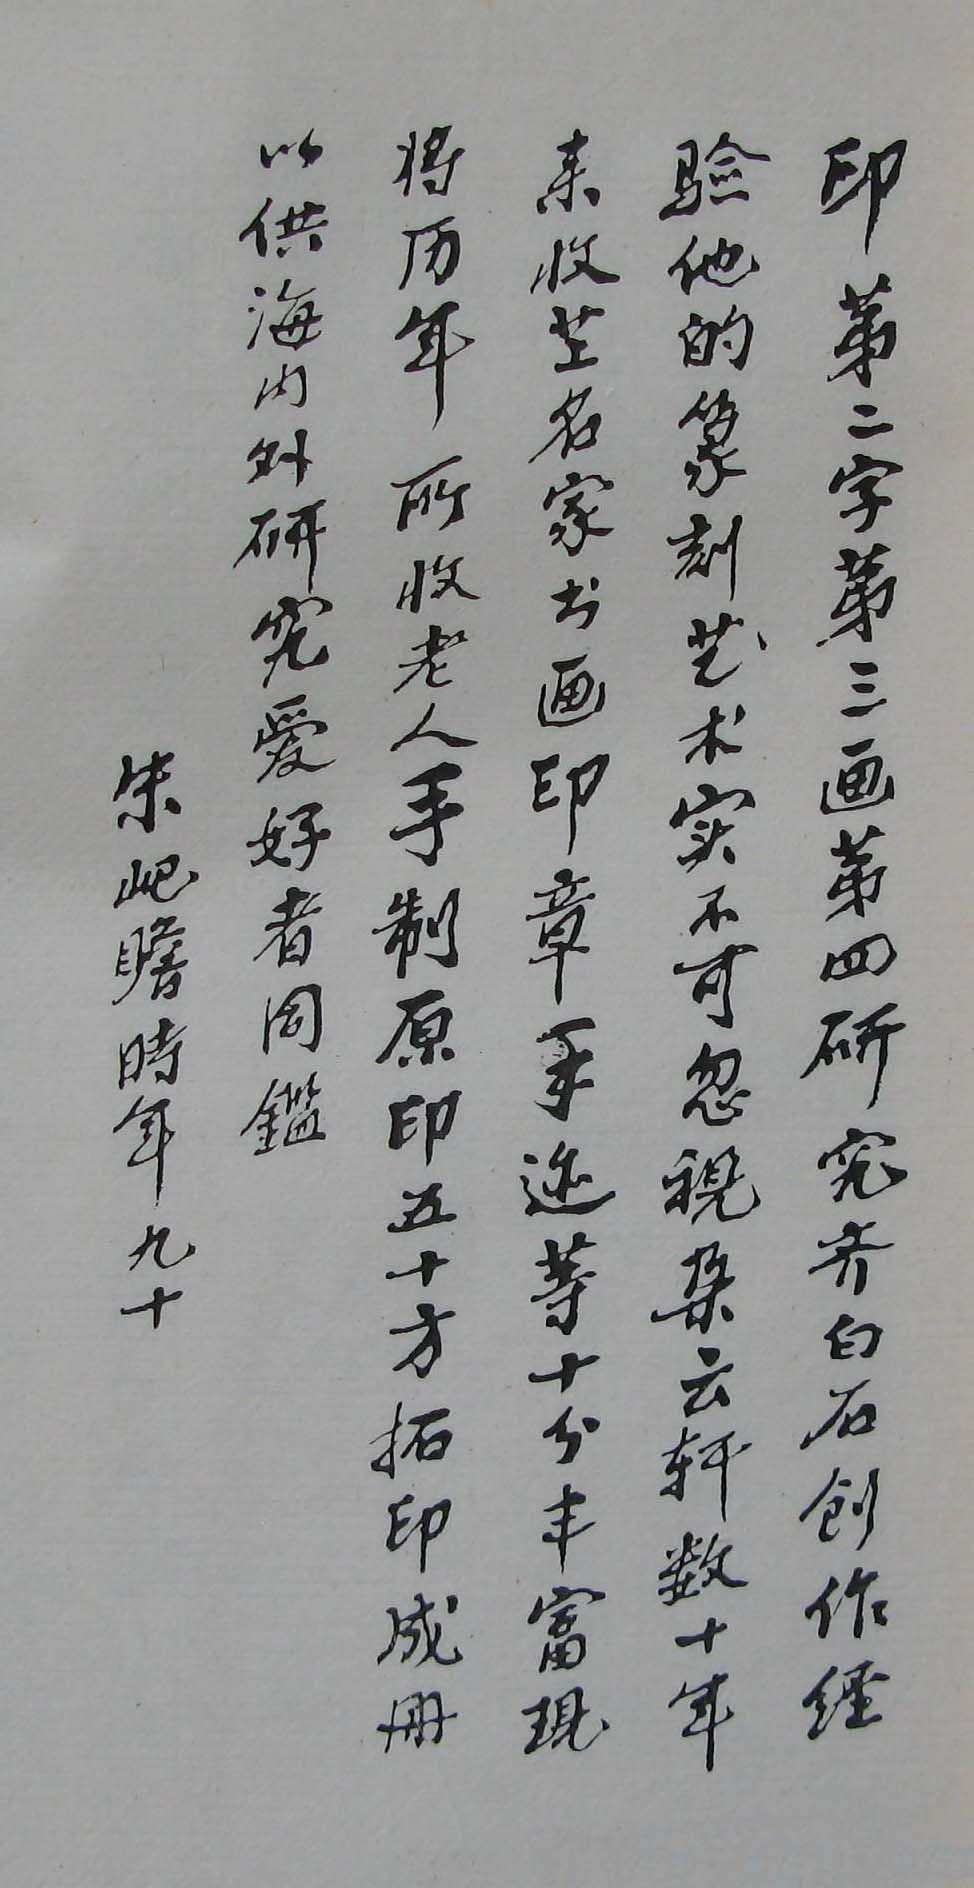 印第二字第三画第四研究齐白石创作经
驗他的篆刻艺术实不可忽視朵云轩数十年
来收芷名家书画印章手迹等十分丰富现
将历年所收老人手制原印五十方拓印成册
以供海内外研究爱好者同鑑
朱屺瞻時年九十